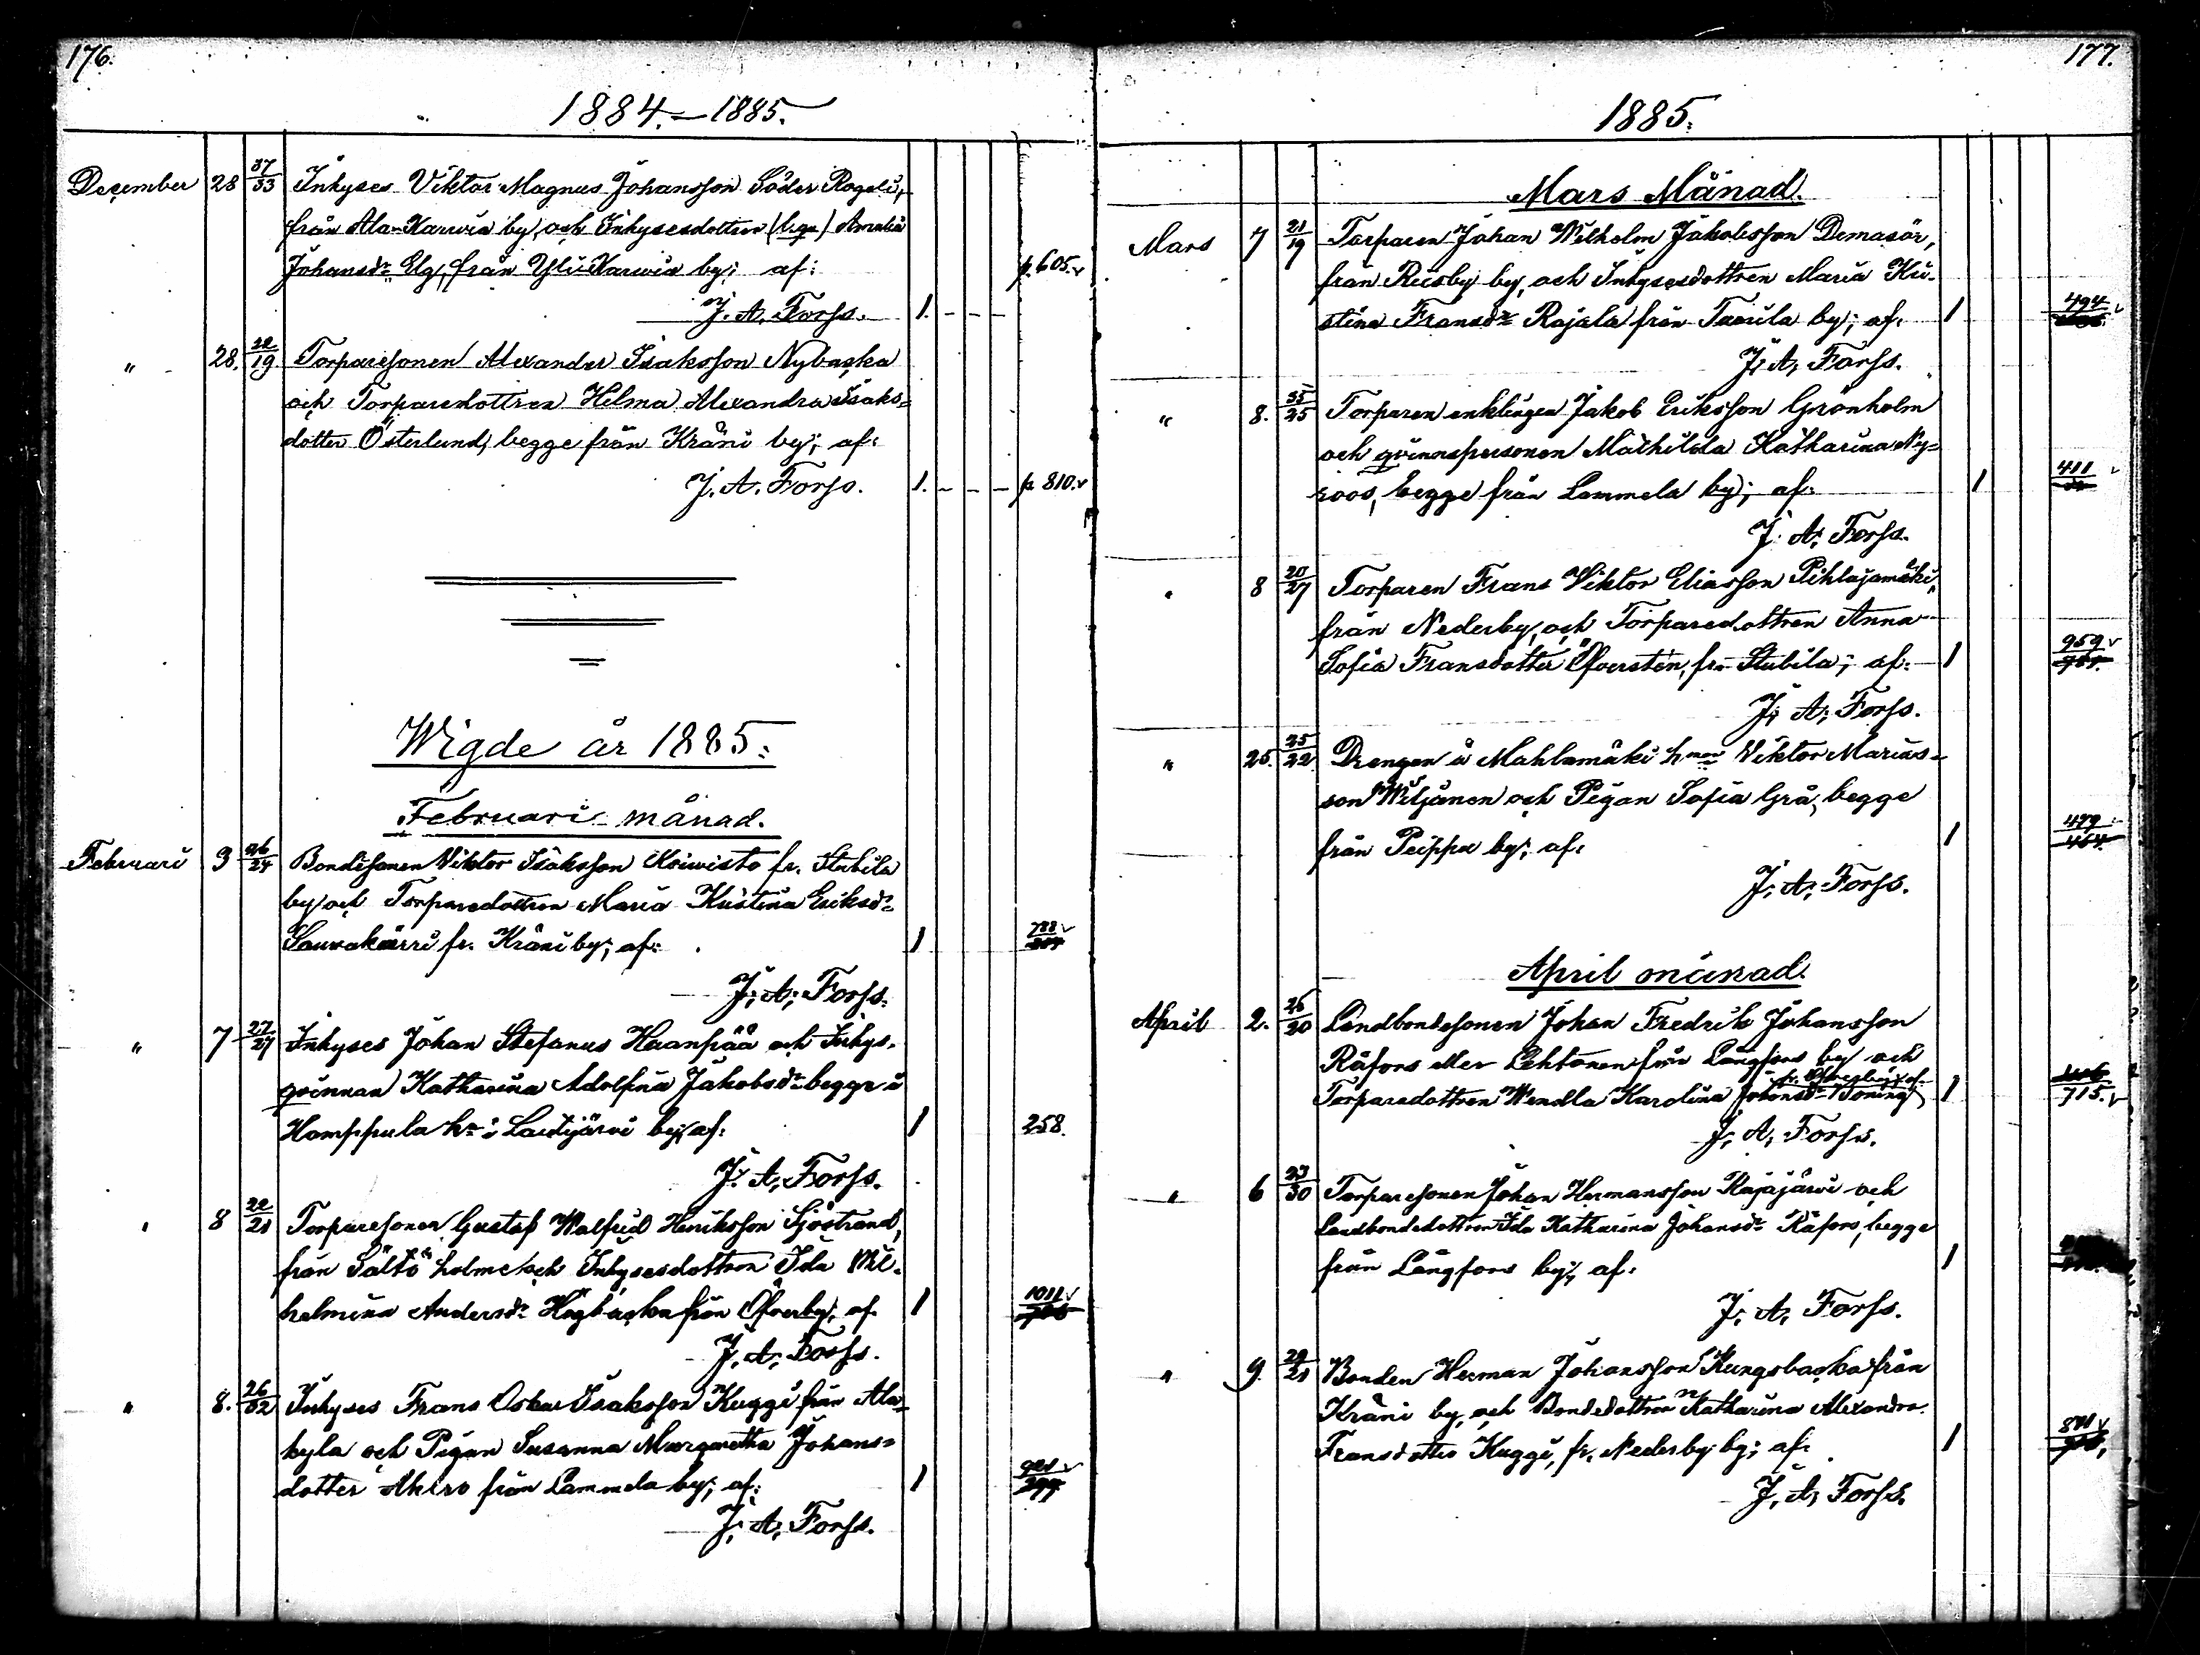 176.
1884.–1885.
December 28 37/33 Inhyses Viktor Magnus Johansson Söder Rogeli,
från Ala-Karwia by, och Inhysesdottren (b.gn) Amalia
Johansdr Elg, från Yli-Karwia by; af: p. 605.
J. A. Forss. 1.
" 28. 22/19 Torparesonen Alexander Isaksson Nybacka
och Torparedottren Helma Alexandra Isaks-
dotter Österlund, begge från Kråni by; af:
J. A. Forss. 1. p 810.
Wigde år 1885.
Februari månad.
Februari 3 26/24 Bondesonen Viktor Isaksson Koiwisto fr. Stubila
by och Torparedottren Maria Kristina Eriksdr
Sauvakärri fr. Kråni by; af: 1 788
J. A. Forss.
" 7 27/27 Inhyses Johan Stefanus Haanpää och Inhys-
qvinnan Katharina Adolfina Jakobsdr begge å
Hamppula hn i Lautijärvi by; af: 1 258.
J. A. Forss.
" 8 22/21 Torparesonen Gustaf Walfrid Henriksson Sjöstrand,
från Sältö holme och Inhysesdottren Ida Wil-
helmina Andersdr Högbacka från Öfverby; af 1 1011
J. A. Forss.
" 8. 26/32 Inhyses Frans Oskar Isaksson Kuggi från Ala-
kyla och Pigan Susanna Margaretha Johans-
dotter Ahlro från Lammela by; af: 1
J. A. Forss.
177.
1885.
Mars Månad.
Mars 7 21/19 Torparen Johan Wilhelm Jakobsson Demasör,
från Riisby by, och Inhysesdottren Maria Kri-
stina Fransdr Rajala från Tuorila by; af: 1 494
J. A. Forss.
" 8. 35/25 Torparen enklingen Jakob Eriksson Grönholm
och qvinnspersonen Mathilda Katharina Ny-
roos, begge från Lammela by; af: 1 411
J. A. Forss.
" 8 20/27 Torparen Frans Viktor Eliasson Pihlajamäki,
från Nederby, och Torparedottren Anna
Sofia Fransdotter Öfversten, fr. Stubila; af: 1 959
J. A. Forss.
" 25. 25/22 Drengen å Mahlamäki hman Viktor Marias-
son Wiljanen och Pigan Sofia Grå, begge
från Peippu by; af: 1 479
J. A. Forss.
April månad.
April 2. 26/20 Landbondesonen Johan Fredrik Johansson
Råfors eller Lehtonen från Långfors by och
fr. Öfverby; af
Torparedottren Wendla Karolina Johansdr Boning 1 715.
J. A. Forss.
" 6 23/30 Torparesonen Johan Hermansson Kajajärvi och
Landbondedottren Ida Katharina Johansdr Råfors, begge
från Långfors by; af: 1
J. A. Forss.
" 9. 29/21 Bonden Herman Johansson Kungsbacka från
Kråni by, och Bondedottren Katharina Alexandra
Fransdotter Kuggi, fr. Nederby by; af: 1
J. A. Forss.